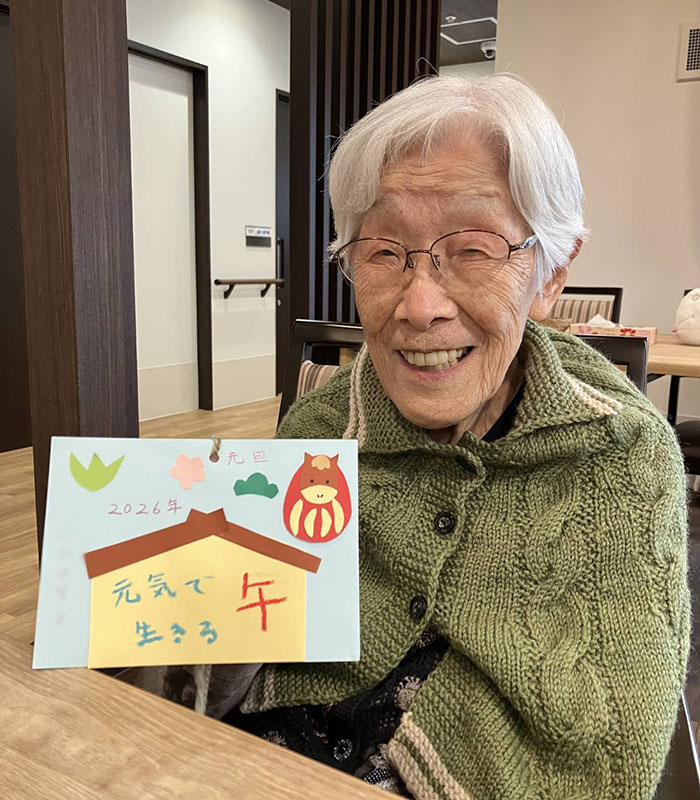 元旦
2026年
元気で
生きる
午